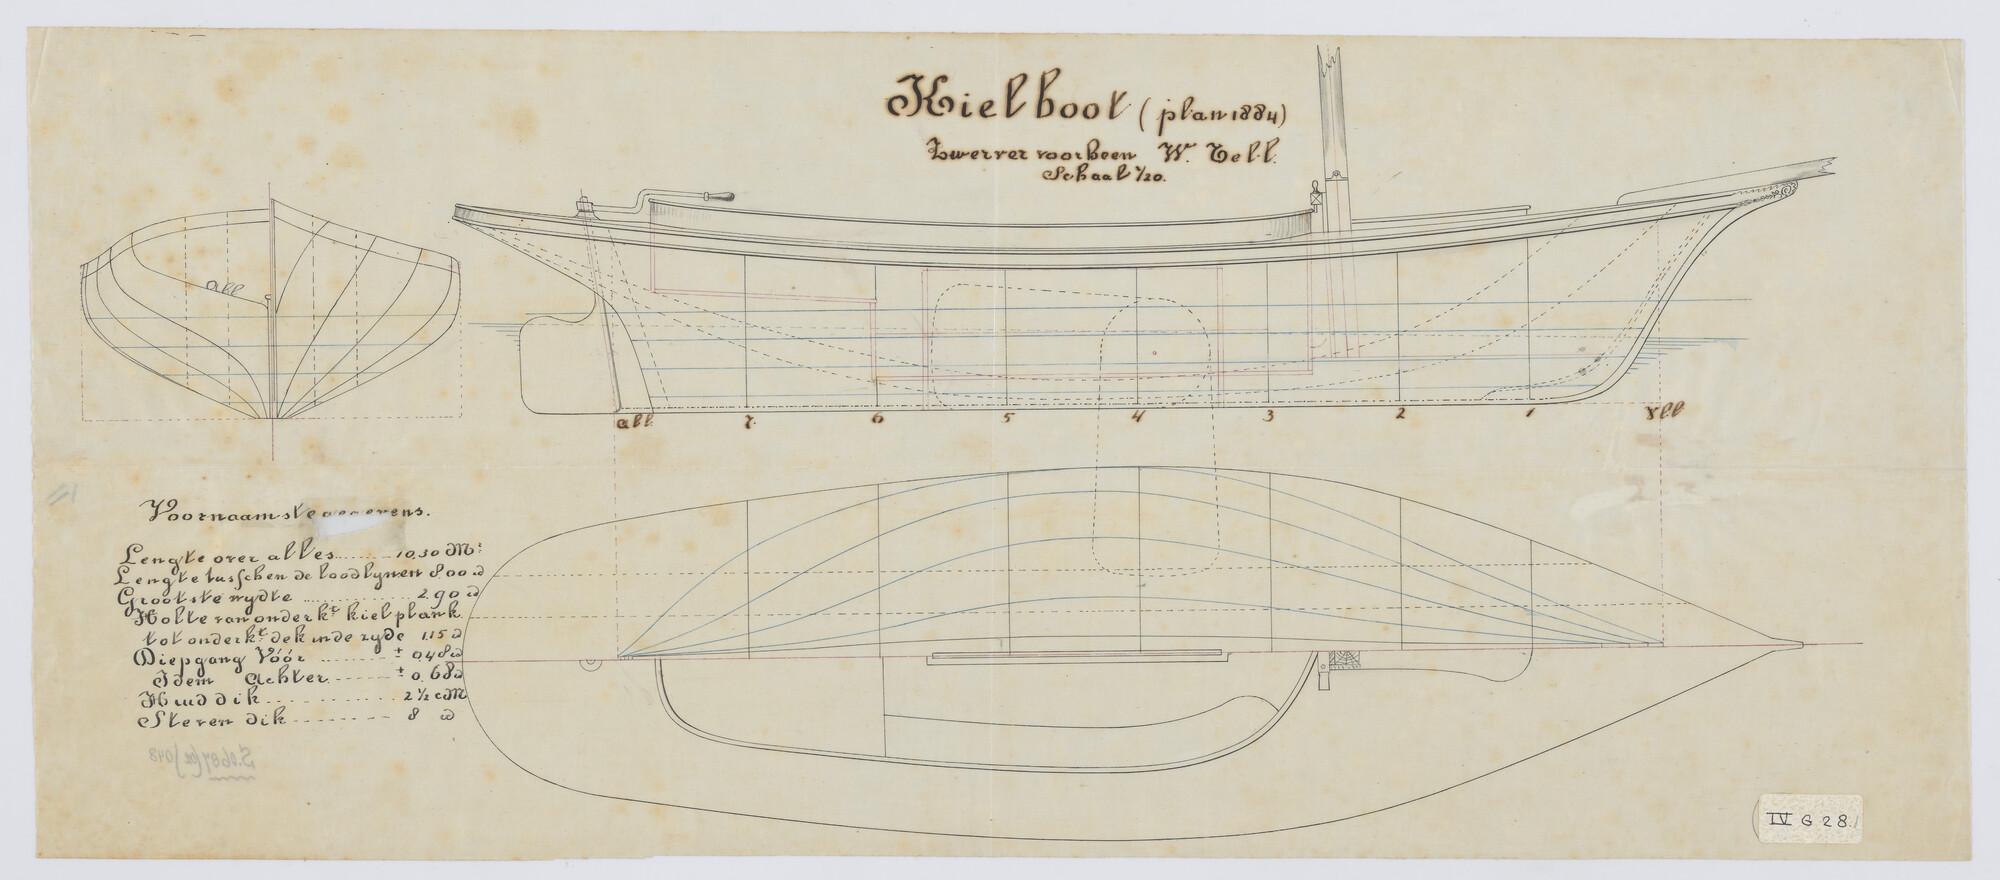 Kielboot (plan 1884)
Zwerver voorheen W. Tell.
Schaal 1/20.
a.l.l.
a.l.l. 7. 6 5 4 3 2 1 v.l.l.
Voornaamste gegevens.
Lengte over alles ........ 10.30 Mr.
Lengte tusschen de loodlynen 8.00 id
Grootste wydte ............ 2.90 id
Holte van onderkt kielplank
tot onderkt dek inde zyde 1.15 id
Diepgang Vóór ......... ± 0.48 id
Idem Achter ......... ± 0.68 id
Huid dik ............ 2 1/2 cM
Steven dik .......... 8 id
IV G 28.1